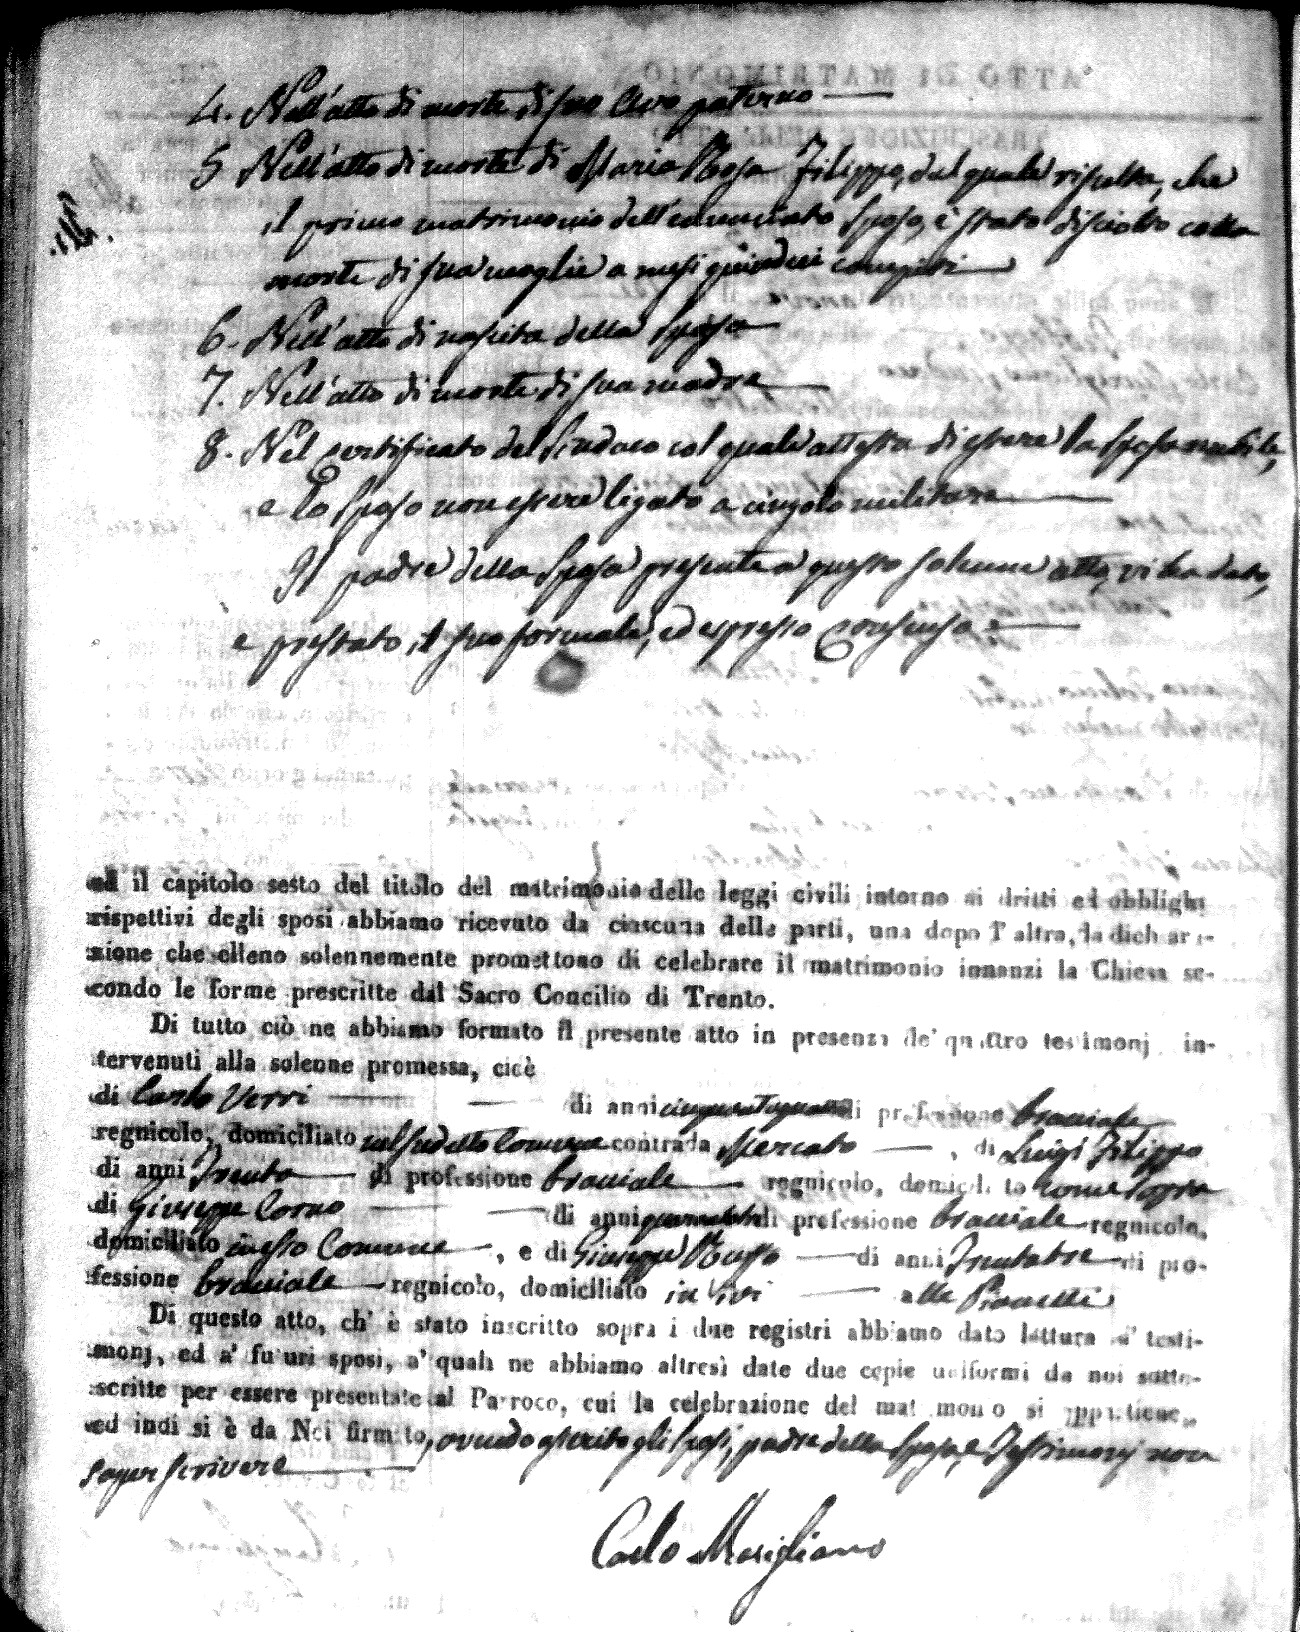 4. Nell'atto di morte di suo Avo paterno
5 Nell'atto di morte di Maria Rosa Filippo, dal quale risulta, che
il primo matrimonio dell'enunciato Sposo, è stato disciolto colla
morte di sua moglie a mesi quindici compiti
6. Nell'atto di nascita della Sposa
7. Nell'atto di morte di sua madre
8. Nel certificato del Sindaco col quale attesta di essere la Sposa nubile,
e lo Sposo non essere ligato a cingolo militare
Il padre della Sposa presente a questo solenne atto, vi ha dato,
e prestato il suo formale, ed espresso Consenso
ed il capitolo sesto del titolo del matrimonio delle leggi civili intorno ai dritti ed obblighi
rispettivi degli sposi abbiamo ricevuto da ciascuna delle parti, una dopo l' altra, la dichiara-
zione che elleno solennemente promettono di celebrare il matrimonio innanzi la Chiesa se-
condo le forme prescritte dal Sacro Concilio di Trento.
Di tutto ciò ne abbiamo formato il presente atto in presenza de' quattro testimonj in-
tervenuti alla solenne promessa, cioè
di Carlo Verri di anni cinquantaquattro di professione bracciale
regnicolo, domiciliato nel sudetto Comune contrada Mercato , di Luigi Filippo
di anni Trenta di professione bracciale regnicolo, domiciliato come sopra
di Giuseppe Corno di anni di professione bracciale regnicolo,
domiciliato in esso Comune , e di Giuseppe Russo di anni Trentatre di pro-
fessione bracciale regnicolo, domiciliato in ivi alle
Di questo atto, ch' è stato inscritto sopra i due registri abbiamo dato lettura a' testi-
monj, ed a' futuri sposi, a' quali ne abbiamo altresì date due copie uniformi da noi sotto-
scritte per essere presentate al Parroco, cui la celebrazione del matrimonio si appartiene,
ed indi si è da Noi firmato, avendo asserito gli Sposi, padre della Sposa, e Testimonj non
saper scrivere
Carlo Marigliano